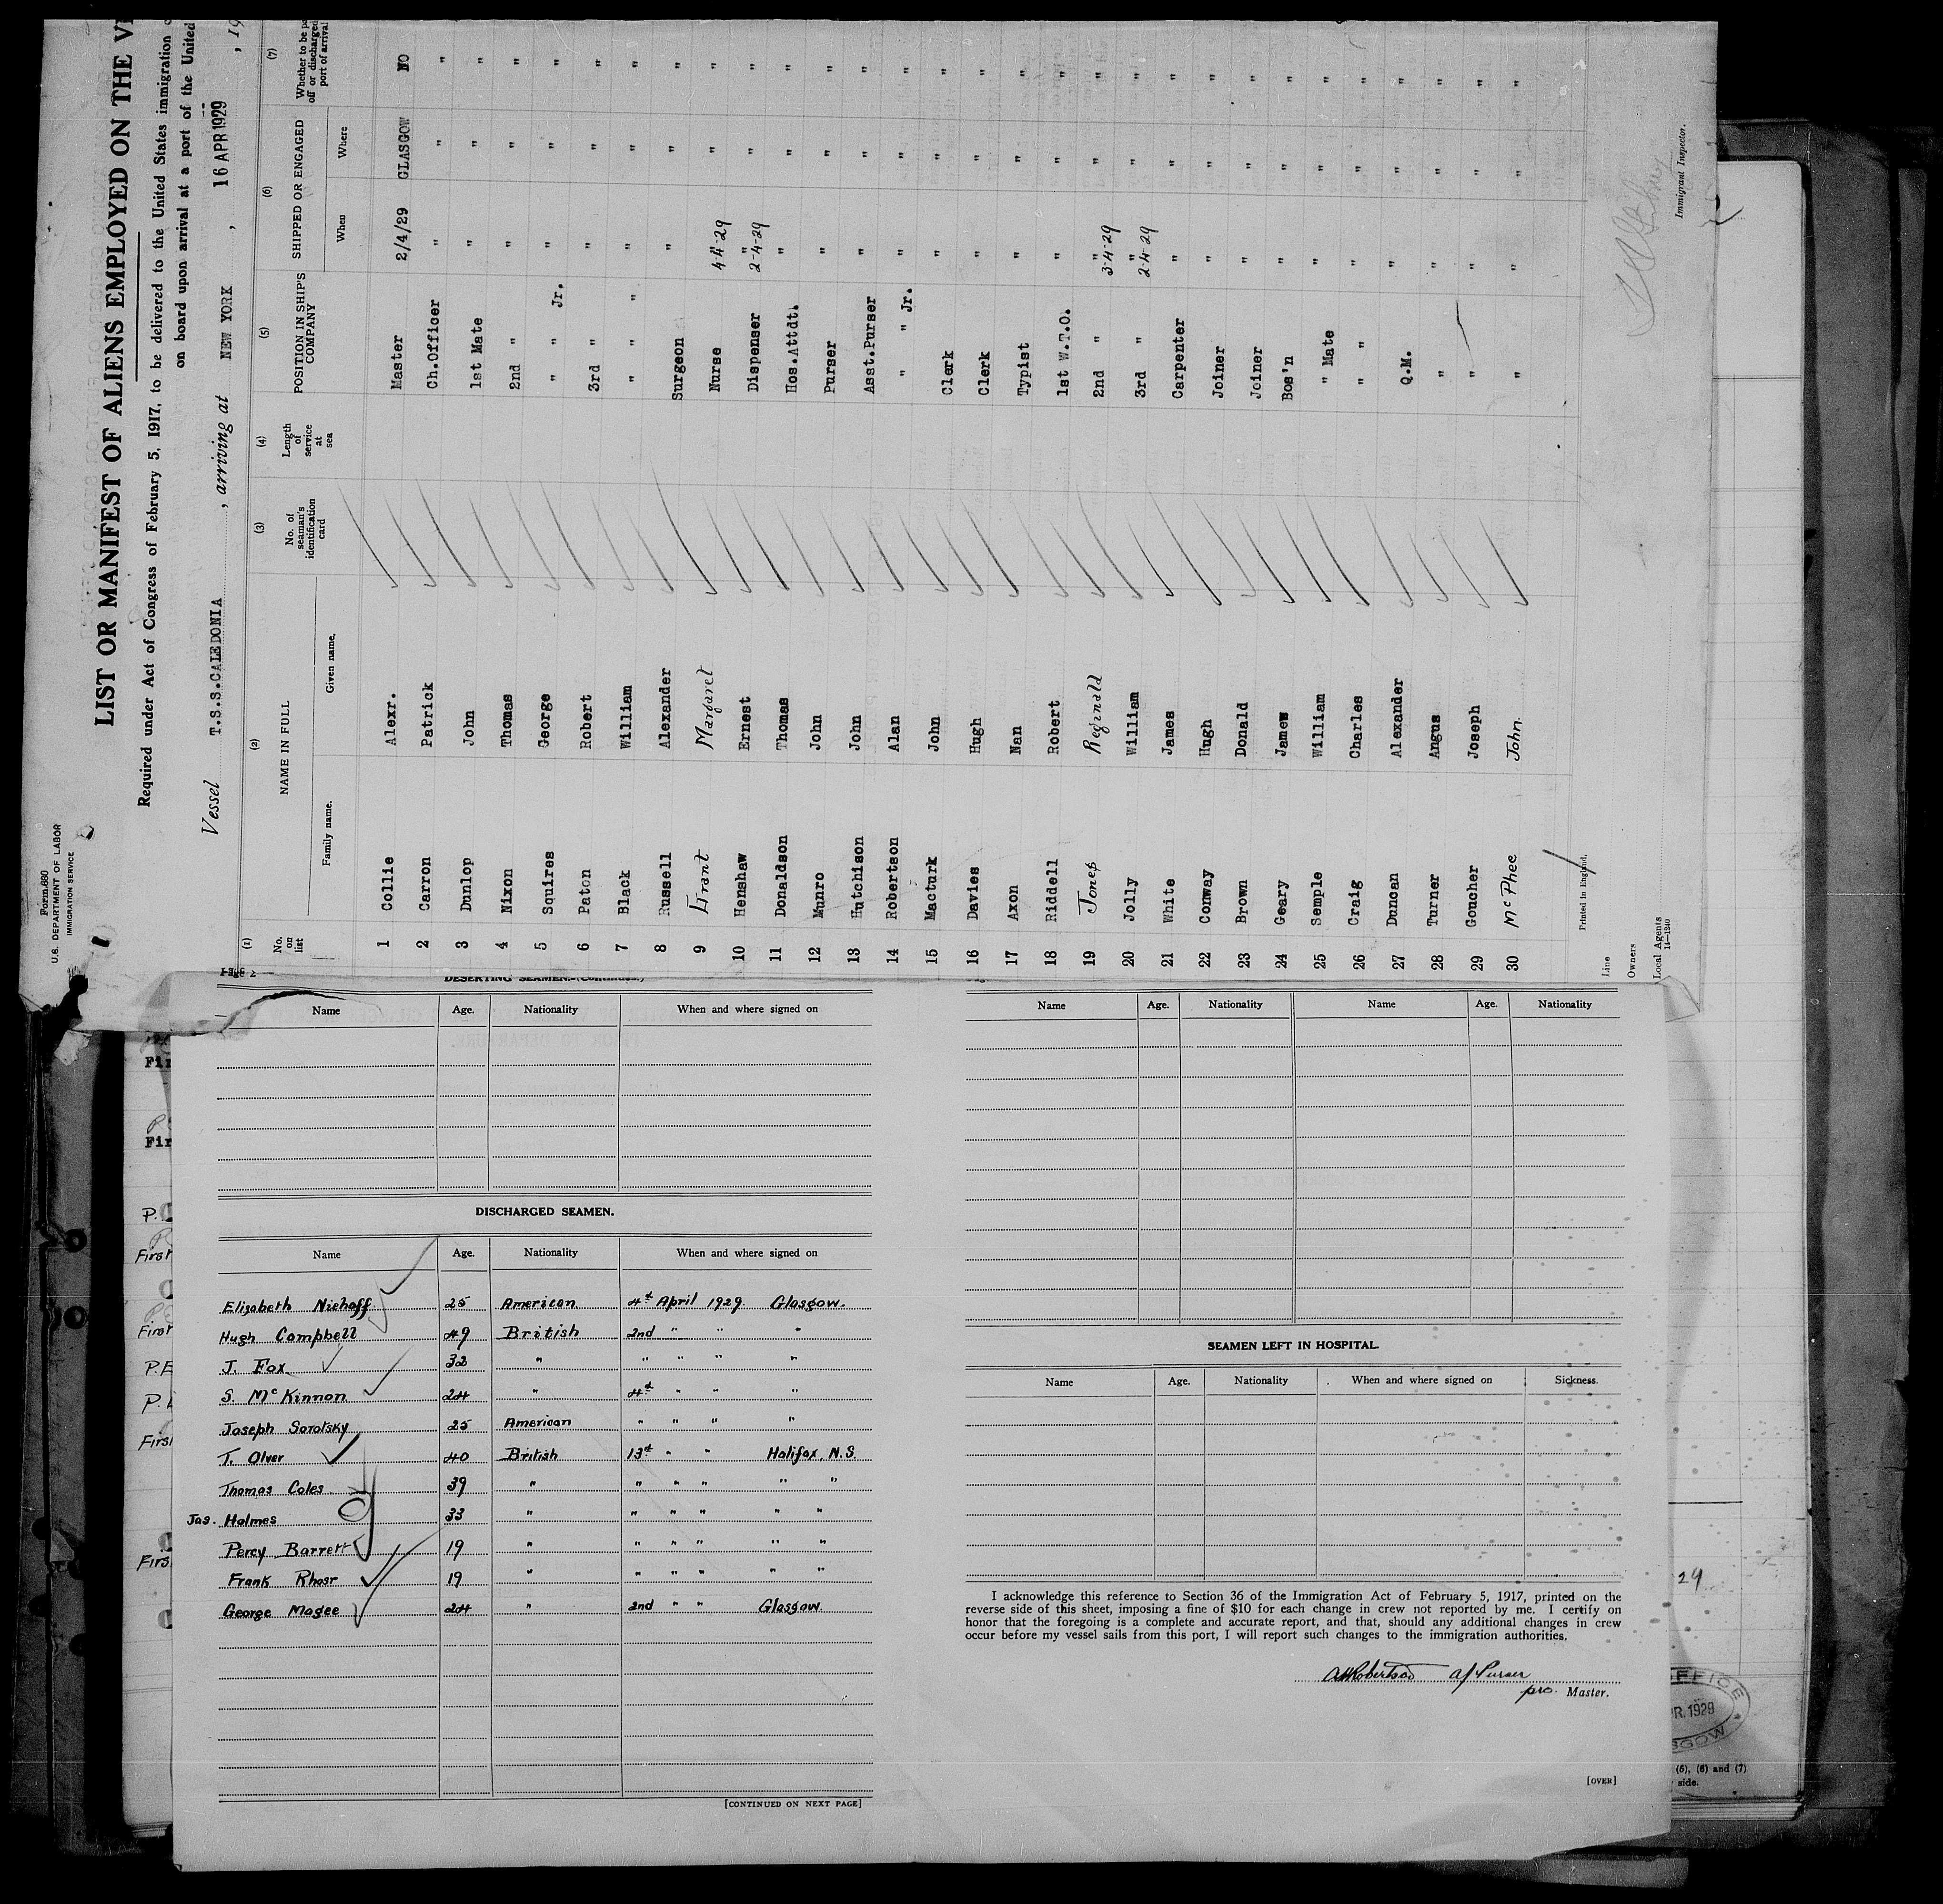 Form 680
U.S. DEPARTMENT OF LABOR
IMMIGRATION SERVICE
LIST OR MANIFEST OF ALIENS EMPLOYED ON THE
Required under Act of Congress of February 5, 1917, to be delivered to the United States immigration
on board upon arrival at a port of the United
Vessel T.S.S. CALEDONIA, arriving at NEW YORK, 16 APR 1929, 19
(1) (2) (3) (4) (5) (6) (7)
No. on list NAME IN FULL Family name. Given name. No. of seaman's identification card Length of service at sea POSITION IN SHIP'S COMPANY SHIPPED OR ENGAGED When Where Whether to be off or discharged port of arrival
1 Collie Alexr. Master 2/4/29 GLASGOW NO
2 Carron Patrick Ch.Officer " " "
3 Dunlop John 1st Mate " " "
4 Nixon Thomas 2nd " " " "
5 Squires George " " Jr. " " "
6 Paton Robert 3rd " " " "
7 Black William " " " " " "
8 Russell Alexander Surgeon " " "
9 Grant Margaret Nurse 4-4-29 " "
10 Henshaw Ernest Dispenser 2-4-29 " "
11 Donaldson Thomas Hos.Attdt. " " "
12 Munro John Purser " " "
13 Hutchison John Asst.Purser " " "
14 Robertson Alan " " Jr. " " "
15 Macturk John Clerk " " "
16 Davies Hugh Clerk " " "
17 Axon Nan Typist " " "
18 Riddell Robert 1st W.T.O. " " "
19 Jones Reginald 2nd " 3-4-29 " "
20 Jolly William 3rd " 2-4-29 " "
21 White James Carpenter " " "
22 Conway Hugh Joiner " " "
23 Brown Donald Joiner " " "
24 Geary Jamew Bos'n " " "
25 Semple William " Mate " " "
26 Craig Charles " " " " "
27 Duncan Alexander Q.M. " " "
28 Turner Angus " " " "
29 Goucher Joseph " " " "
30 McPhee John. " " " "
Printed in England.
Line
Owners
Local Agents
14—1240
Immigrant Inspector.
DESERTING SEAMEN—(Continued.)
Name Age. Nationality When and where signed on
DISCHARGED SEAMEN.
Name Age. Nationality When and where signed on
Elizabeth Niehoff 25 American 4th April 1929. Glasgow.
Hugh Campbell 49 British 2nd " " "
J. Fox 32 " " " " "
S. McKinnon 24 " 4th " " "
Joseph Sorotsky 25 American " " " "
T. Olver 40 British 13th " " Halifax, N.S.
Thomas Coles 39 " " " " " "
Jas. Holmes 33 " " " " " "
Percy Barrett 19 " " " " " "
Frank Rhosr 19 " " " " " "
George Magee 24 " 2nd " " Glasgow.
[CONTINUED ON NEXT PAGE]
Name Age. Nationality Name Age. Nationality
SEAMEN LEFT IN HOSPITAL.
Name Age. Nationality When and where signed on Sickness.
I acknowledge this reference to Section 36 of the Immigration Act of February 5, 1917, printed on the
reverse side of this sheet, imposing a fine of $10 for each change in crew not reported by me. I certify on
honor that the foregoing is a complete and accurate report, and that, should any additional changes in crew
occur before my vessel sails from this port, I will report such changes to the immigration authorities.
AHRobertson A/Purser
pro. Master.
[OVER]
Fir
Fir
P.
First
First
P.
First
First
29
OFFICE
PR. 1929
SGOW
(5), (6) and (7)
side.